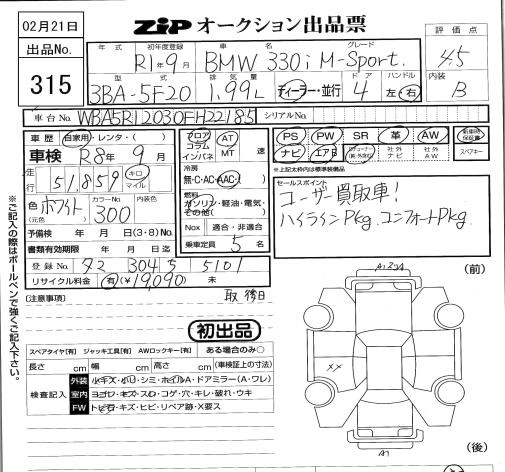 02月21日
ZiP オークション出品票
評価点
4.5
出品No.
315
年式 初年度登録 車名 グレード
R1年9月 BMW 330i M-Sport.
型式 排気量 ドア ハンドル
3BA-5F20 1.99L ディーラー・並行 4 左・右
内装
B
車台No. WBA5R12030FH22185 シリアルNo.
車歴 自家用・レンタ・( )
車検 R8年9月
走行 51,859 キロ マイル
色(元色) ホワイト カラーNo. 300 内装色
予備検 年 月 日(3・8)No.
書類有効期限 年 月 日迄
登録No. 72 304 5 5101
リサイクル料金 有(¥19,090) 未
フロア コラム インパネ
AT MT 速
冷房
無・C・AC・AAC
燃料
ガソリン・軽油・電気・その他( )
Nox 適合・非適合
乗車定員 5 名
PS PW SR 革 AW 新車時保証書
ナビ エアB 社外ナビ 社外AW スペアキー
※上記太枠内は標準装備品
セールスポイント
ユーザー買取車!
ハイラインPkg. コンフォートPkg.
※ご記入の際はボールペンで強くご記入下さい。
[注意事項]
取 後日
初出品
スペアタイヤ[有] ジャッキ工具[有] AWロックキー[有] ある場合のみ○
長さ cm 幅 cm 高さ cm (車検証上の寸法)
検査記入
外装 小キズ・小凹・シミ・ホイルA・ドアミラー(A・ワレ)
室内 ヨゴレ・キズ・スレ・コゲ・穴・キレ・破れ・ウキ
FW トビ石・キズ・ヒビ・リペア跡・X要ス
(前)
××
A1
(後)